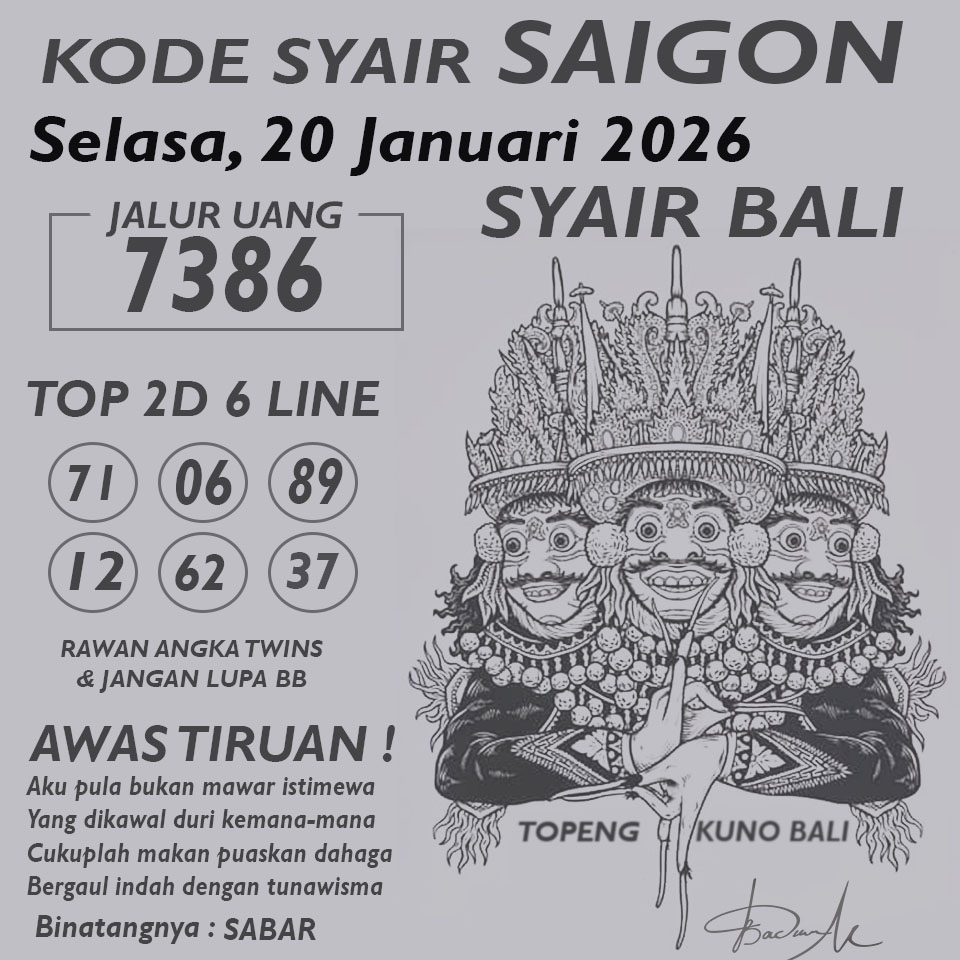 KODE SYAIR SAIGON
Selasa, 20 Januari 2026
SYAIR BALI
JALUR UANG
7386
TOP 2D 6 LINE
71 06 89
12 62 37
RAWAN ANGKA TWINS
& JANGAN LUPA BB
AWAS TIRUAN !
Aku pula bukan mawar istimewa
Yang dikawal duri kemana-mana
Cukuplah makan puaskan dahaga
Bergaul indah dengan tunawisma
Binatangnya : SABAR
TOPENG KUNO BALI